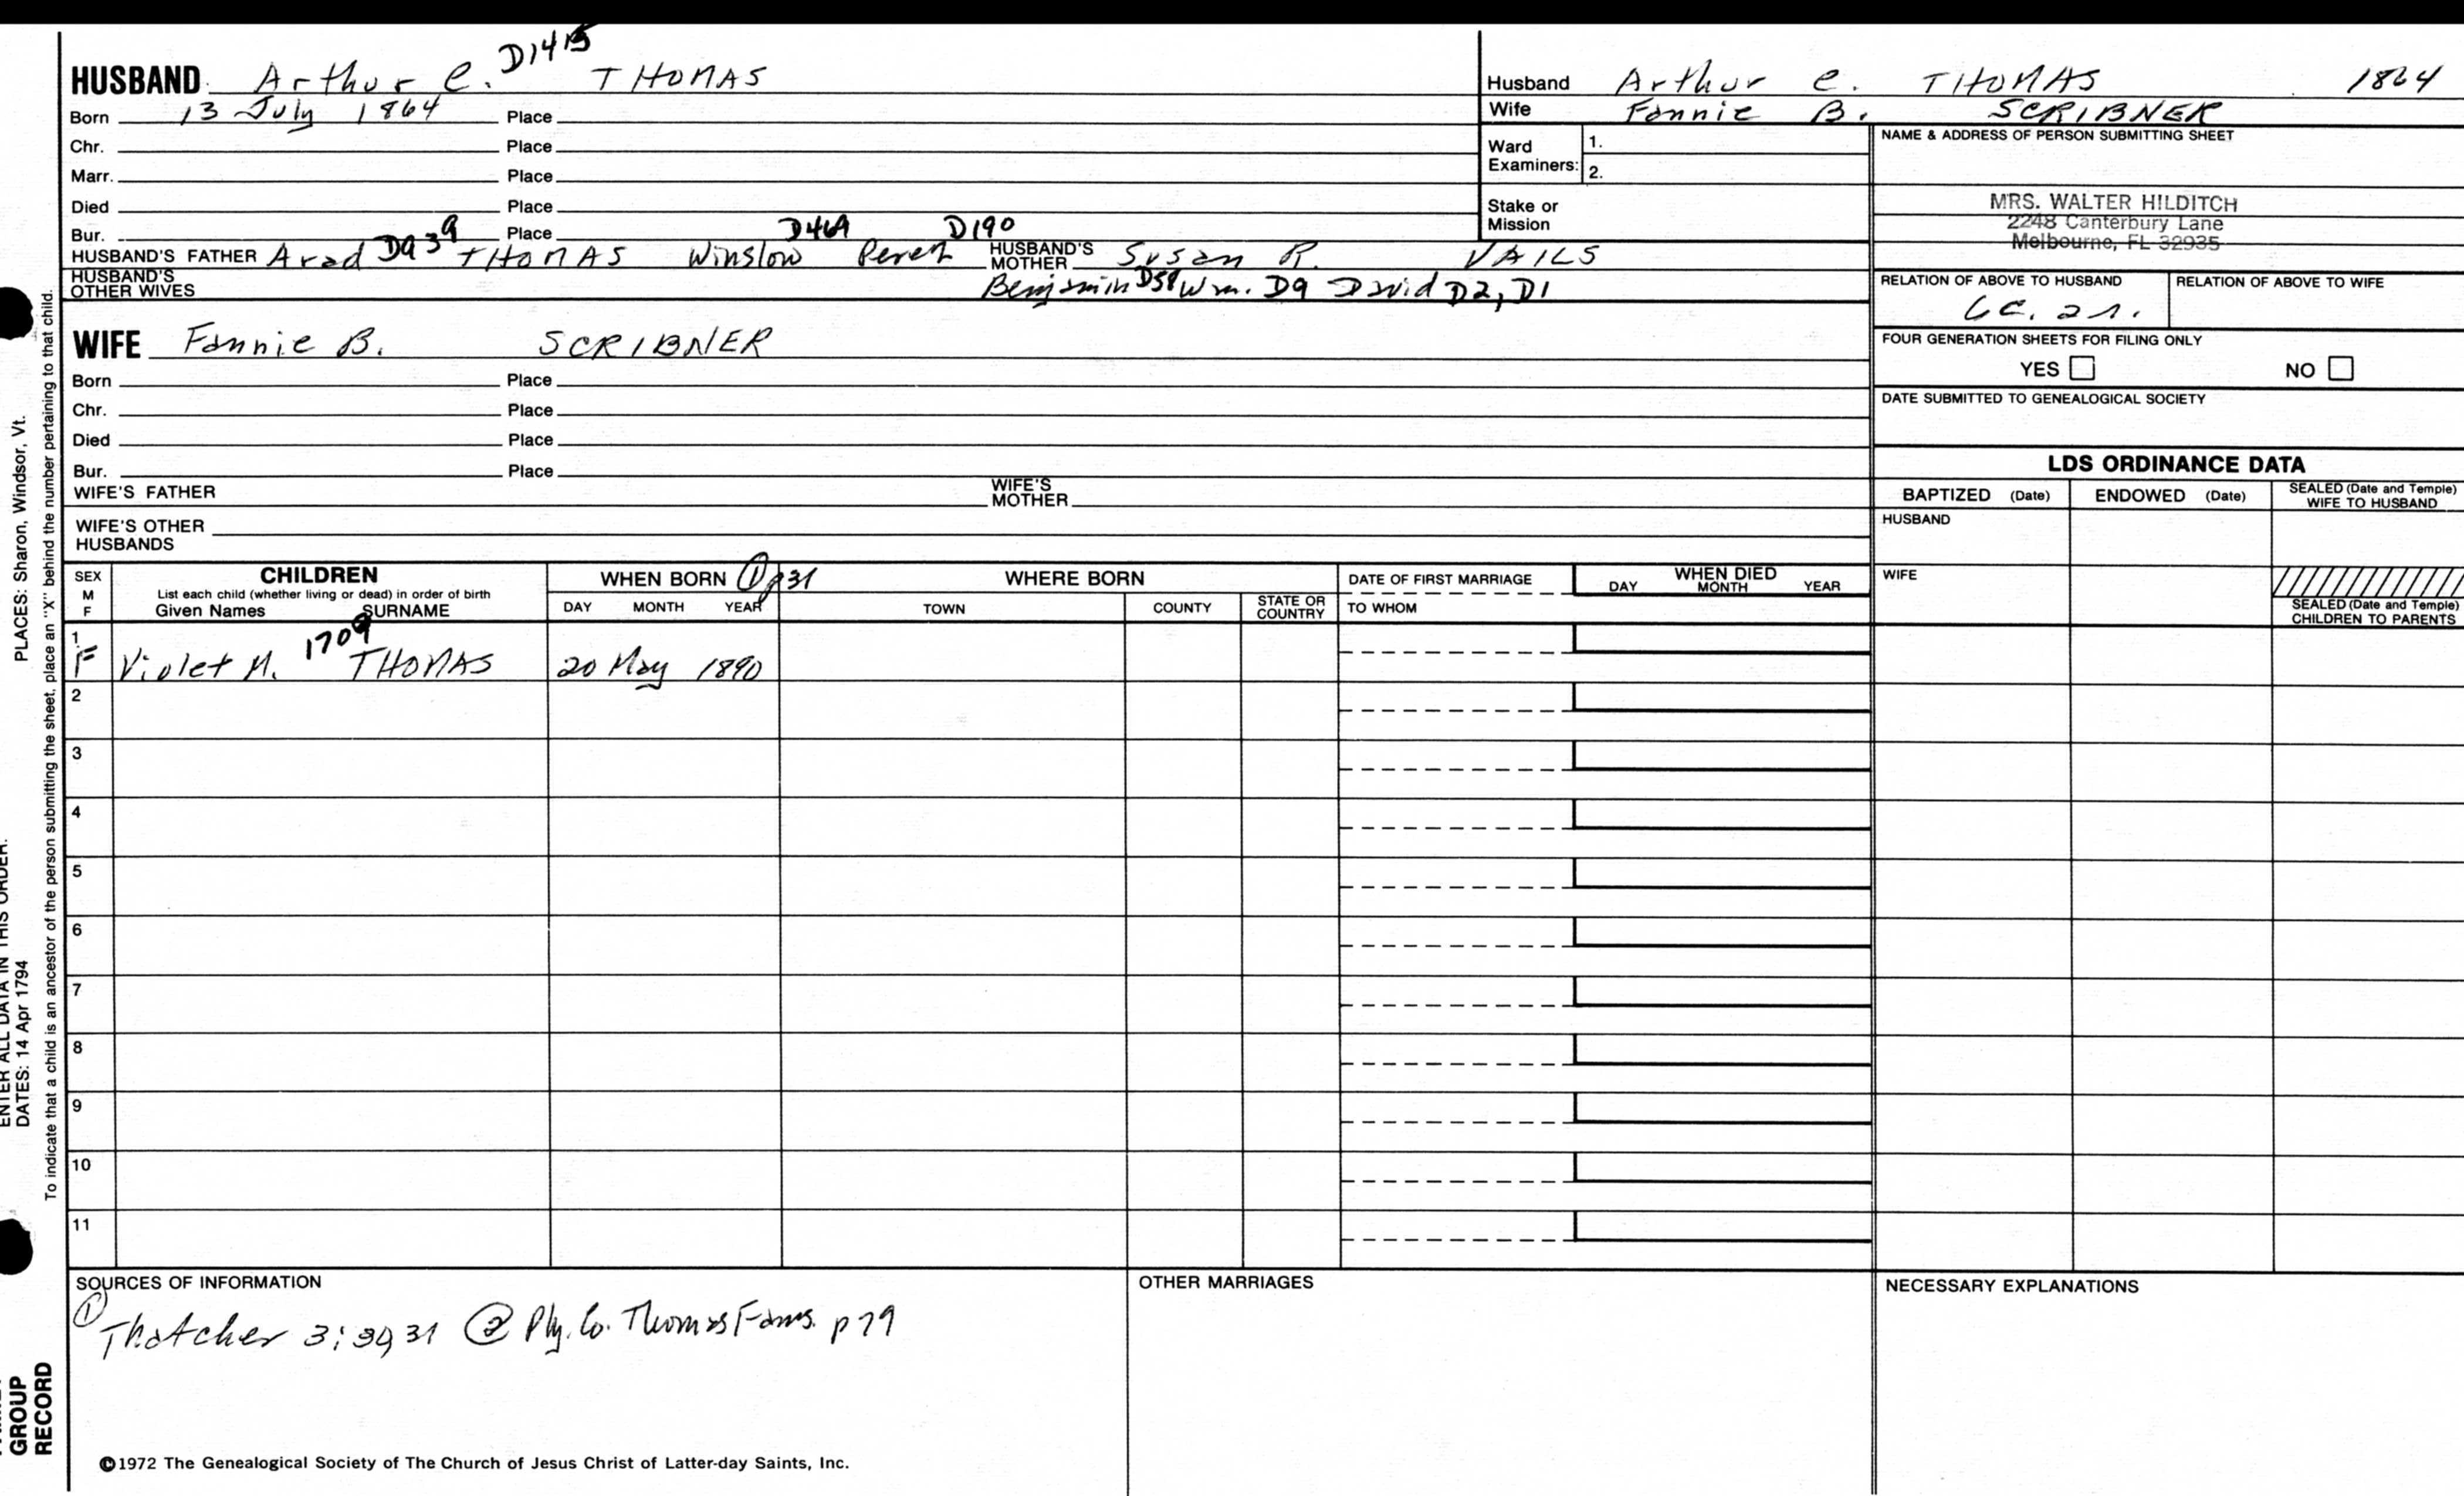 HUSBAND Arthur C. D1415 THOMAS
Born 13 July 1864 Place
Chr. Place
Marr. Place
Died Place
Bur. Place D469 D190
HUSBAND'S FATHER Arad D939 THOMAS Winslow Perez HUSBAND'S MOTHER Susan R. VAILS
HUSBAND'S OTHER WIVES Benjamin D58 Wm. D9 David D2, D1
Husband Arthur C. THOMAS 1864
Wife Fannie B. SCRIBNER
Ward Examiners: 1.
2.
Stake or Mission
NAME & ADDRESS OF PERSON SUBMITTING SHEET
MRS. WALTER HILDITCH
2248 Canterbury Lane
Melbourne, FL 32935
RELATION OF ABOVE TO HUSBAND RELATION OF ABOVE TO WIFE
FOUR GENERATION SHEETS FOR FILING ONLY
YES NO
DATE SUBMITTED TO GENEALOGICAL SOCIETY
WIFE Fannie B. SCRIBNER
Born Place
Chr. Place
Died Place
Bur. Place
WIFE'S FATHER WIFE'S MOTHER
WIFE'S OTHER HUSBANDS
LDS ORDINANCE DATA
BAPTIZED (Date) ENDOWED (Date) SEALED (Date and Temple) WIFE TO HUSBAND
HUSBAND
WIFE
SEALED (Date and Temple) CHILDREN TO PARENTS
SEX M F
CHILDREN
List each child (whether living or dead) in order of birth
Given Names SURNAME
WHEN BORN ① p31
DAY MONTH YEAR
WHERE BORN
TOWN COUNTY STATE OR COUNTRY
DATE OF FIRST MARRIAGE
TO WHOM
WHEN DIED
DAY MONTH YEAR
1 F Violet M. 1709 THOMAS 20 May 1890
2
3
4
5
6
7
8
9
10
11
SOURCES OF INFORMATION
① Thatcher 3:30, 31 ② Ply. Co. Thomas Fams. p 79
OTHER MARRIAGES
NECESSARY EXPLANATIONS
©1972 The Genealogical Society of The Church of Jesus Christ of Latter-day Saints, Inc.
PLACES: Sharon, Windsor, Vt.
To indicate that a child is an ancestor of the person submitting the sheet, place an "X" behind the number pertaining to that child.
ENTER ALL DATA IN THIS ORDER:
DATES: 14 Apr 1794
GROUP
RECORD